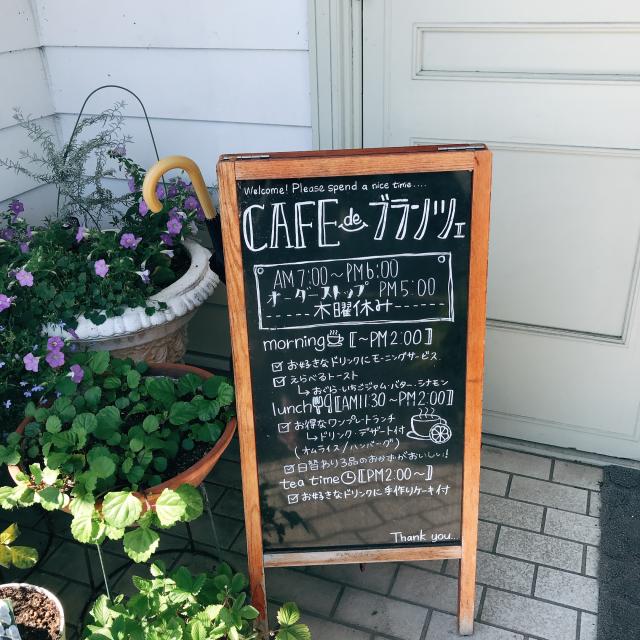 Welcome! Please spend a nice time....
CAFE de ブランツェ
AM 7:00～PM 6:00
オーダーストップ PM 5:00
木曜休み
morning 【～PM2:00】
☑ お好きなドリンクにモーニングサービス
☑ えらべるトースト
↳ おぐら・いちごジャム・バター・シナモン
lunch 【AM11:30～PM2:00】
☑ お得なワンプレートランチ
↳ ドリンク・デザート付
(オムライス/ハンバーグ)
☑ 日替わり3品のおかずがおいしい!
tea time 【PM2:00～】
☑ お好きなドリンクに手作りケーキ付
Thank you...